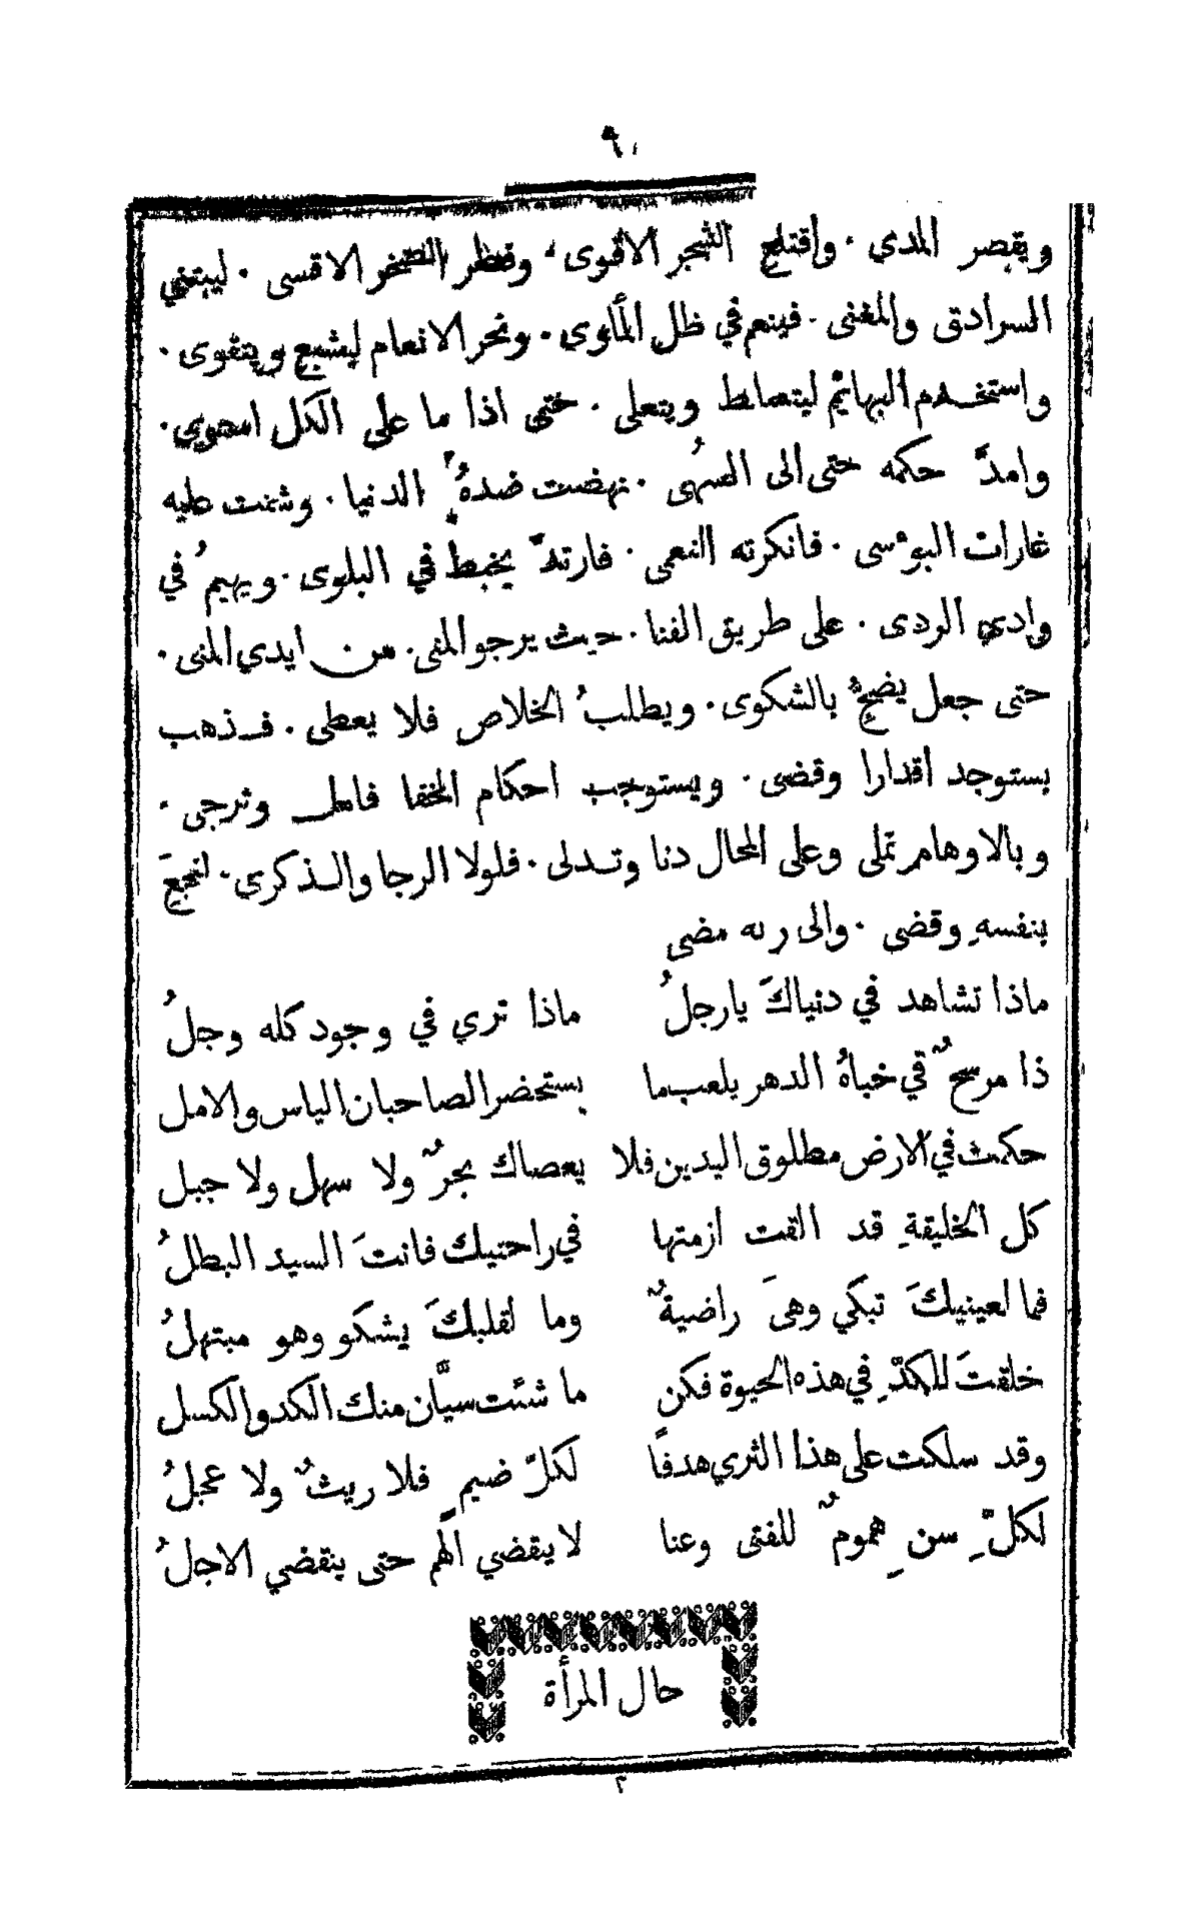 ٩
ويقصر المدى · واقتلع الشجر الاقوى · وفطر الصخر الاقسى · ليبتني
السرادق والمغنى · فينعم في ظل المأوى · ونحر الانعام ليشبع ويتقوى ·
واستخدم البهائم ليتعاظ ويتعلى · حتى اذا ما على الكل احتوى ·
وامدَّ حكمه حتى الى السهُى · نهضت ضدهُ الدنيا · وشنت عليه
غارات البؤسى · فانكرته النعمى · فارتدَّ يخبط في البلوى · ويهيمُ في
وادي الردى · على طريق الفنا · حيث يرجو المنى · من ايدي المنى ·
حتى جعل يضجُّ بالشكوى · ويطلبُ الخلاص فلا يعطى · فذهب
يستوجد اقدارا وقضى · ويستوجب احكام الخفا فامل وترجى ·
وبالاوهام تملى وعلى المحال دنا وتدلى · فلولا الرجا والذكرى · لفجعَ
بنفسهِ وقضى · والى ربه مضى
ماذا تشاهد في دنياكَ يارجلُ ماذا تري في وجود كله وجلُ
ذا مرسحٌ في خباهُ الدهر يلعب ما يستحضر الصاحبان الياس والامل
حكمت في الارض مطلوق اليدين فلا يعصاك بحرٌ ولا سهل ولا جبل
كل الخليقةِ قد القت ازمتها في راحتيك فانتَ السيد البطلُ
فما لعينيكَ تبكي وهىَ راضيةٌ وما لقلبكَ يشكو وهو مبتهلُ
خلقتَ للكدِّ في هذه الحيوة فكن ما شئت سيَّان منك الكد والكسل
وقد سلكت على هذا الثري هدفًا لكلّ ضيمٍ فلا ريثٌ ولا عجلُ
لكلِّ سنٍ همومٌ للفتى وعنا لا ينقضي الهم حتى ينقضي الاجلُ
حال المرأة
٢